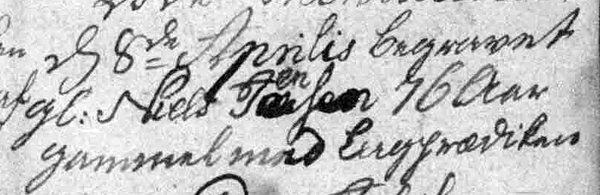 d 8de Aprilis begravet
af gl: Niels 76 Aar
gammel med Ligprædiken